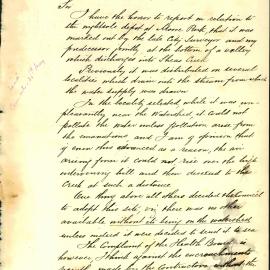 To
I have the honor to report in relation to
the nightsoil depot at Moore Park, that it was
marked out by the late City Surveyor and my
predecessor jointly at the bottom of a valley
which discharges into Sheas Creek
Previously it was distributed in several
localities which drain into the stream from which
the water supply was drawn
In the locality selected while it was un-
pleasantly near the Watershed, it could not
pollute the water unless pollution arises from
the emanations and I am of opinion that
if even this advanced as a reason, the air
arising from it could not rise over the high
intervening hill and then descend to the
Creek at such a distance
One thing above all others decided
to adopt this site, viz, there was no other
available without its being on the watershed
unless indeed it were decided to send it to sea
The Complaint of the Health Board is
however, I think against the encroachments
made by the Contractors